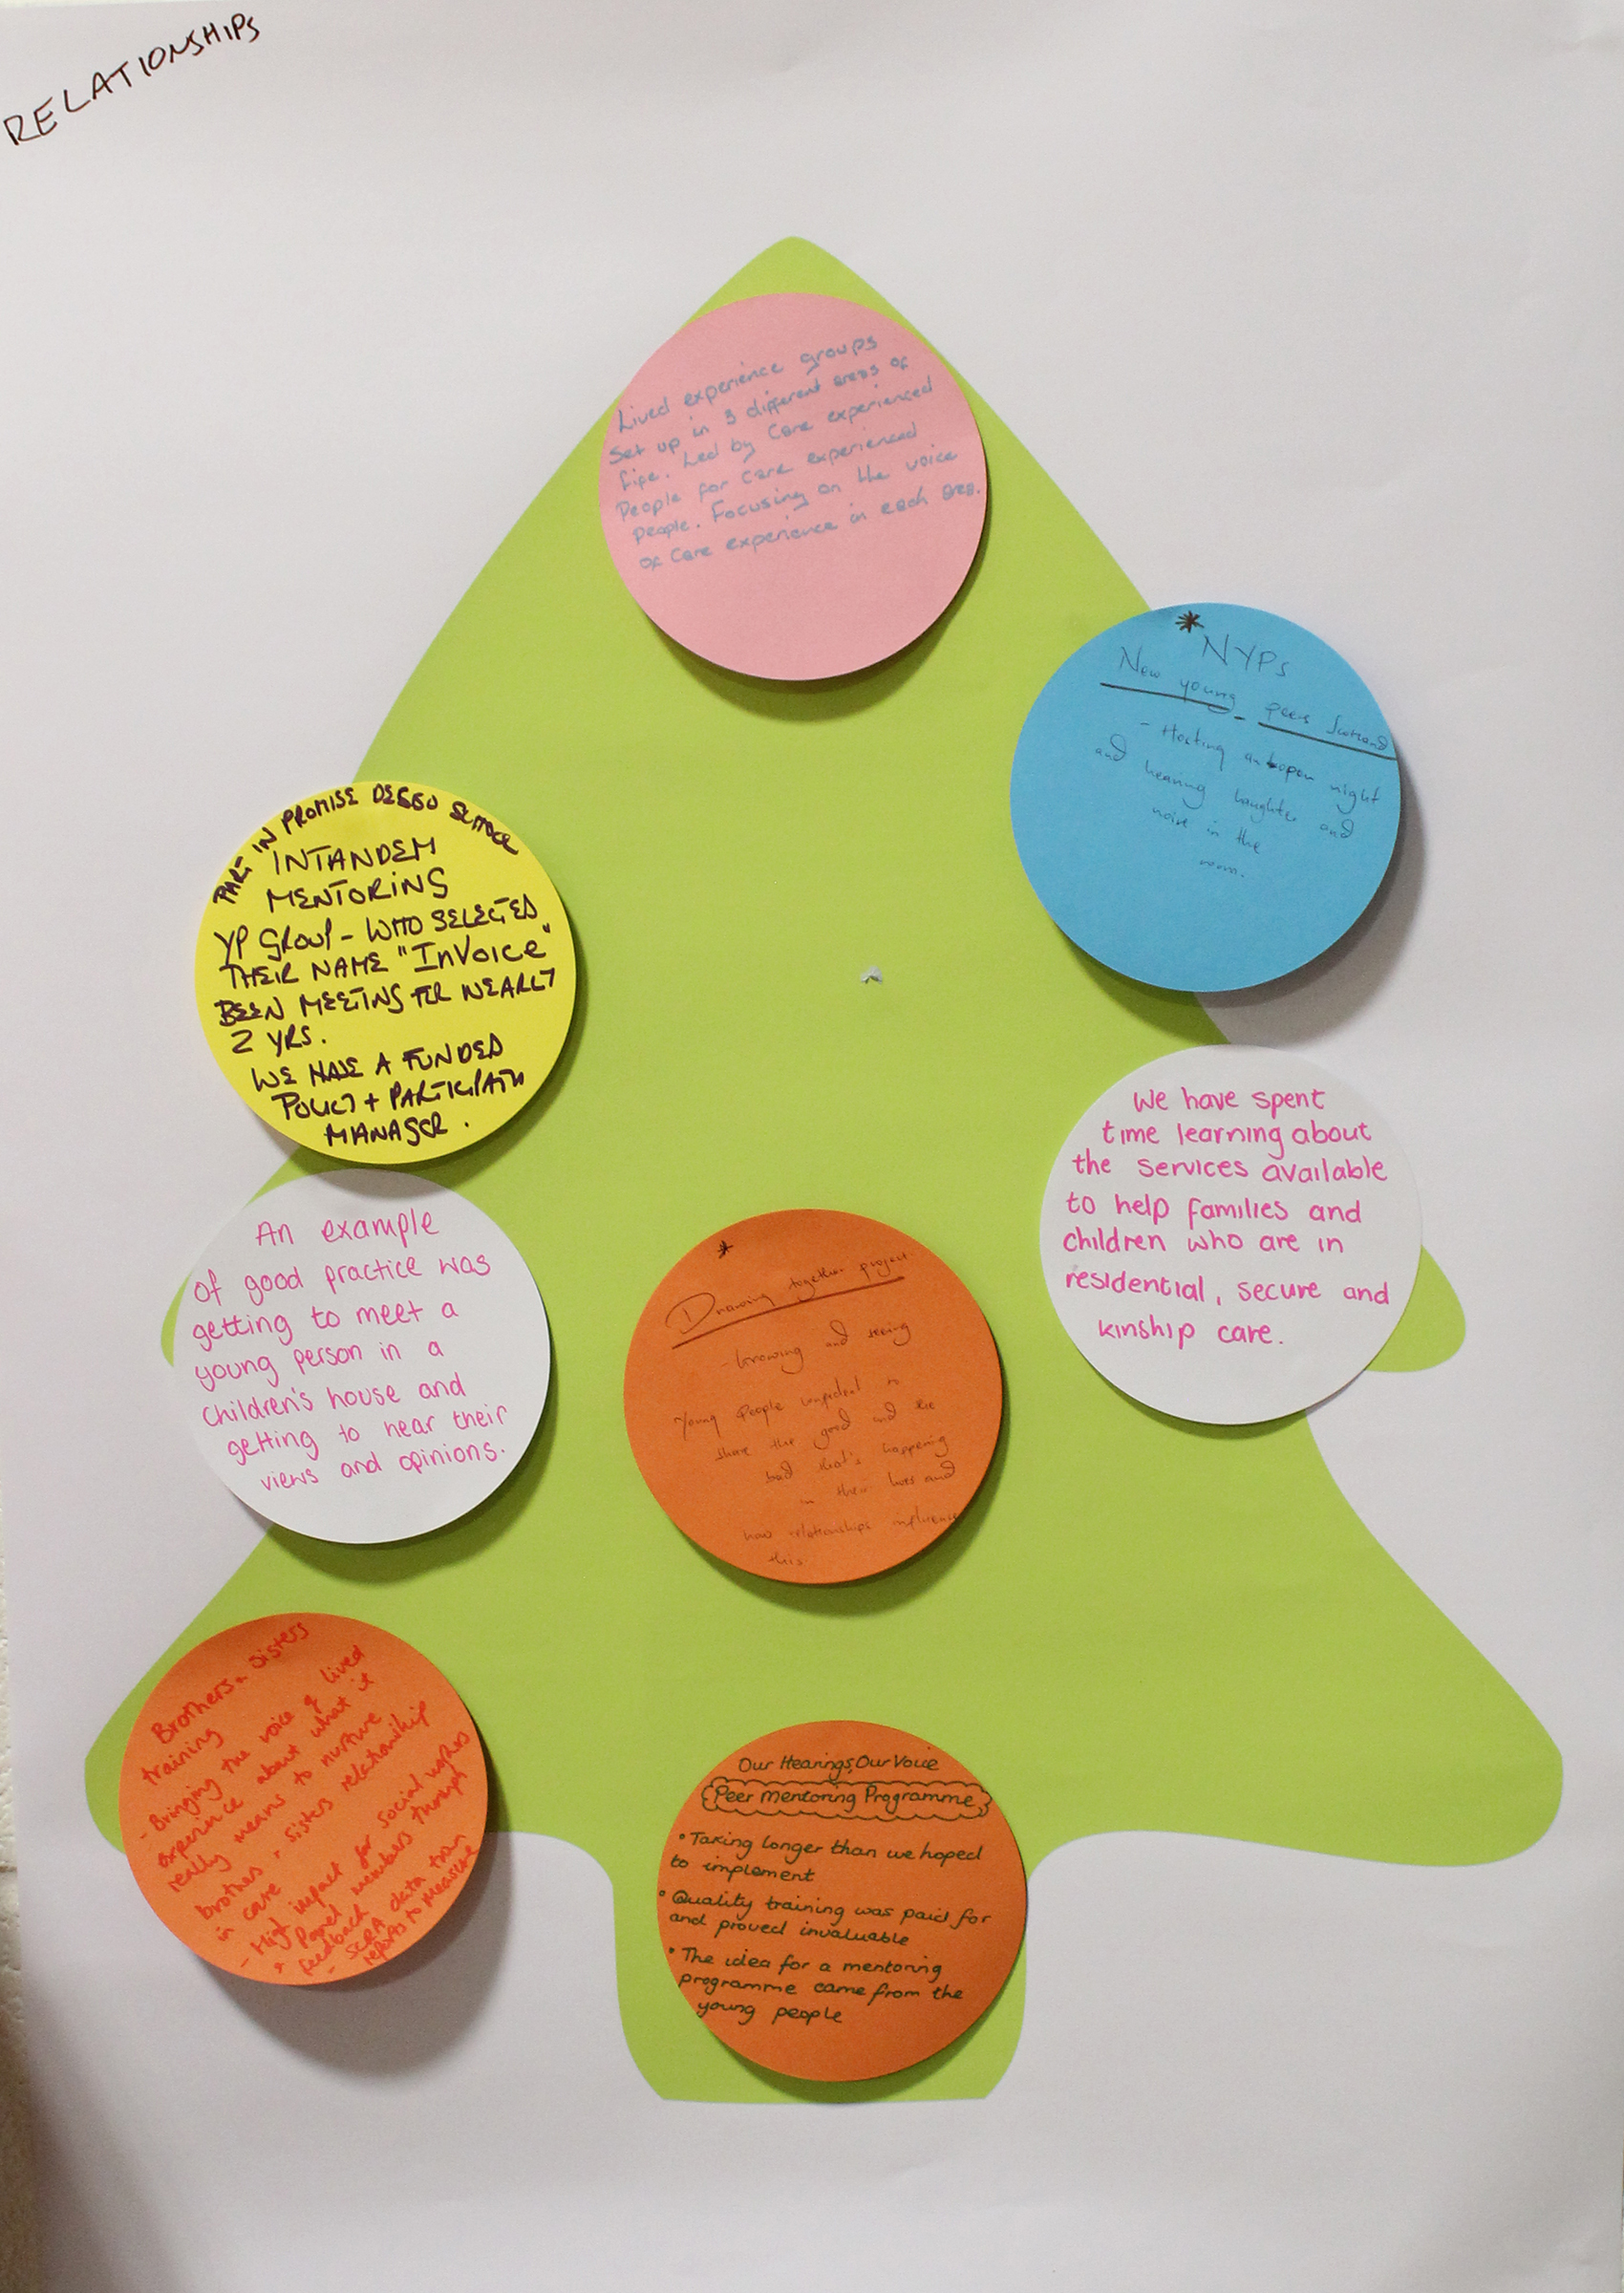 RELATIONSHIPS
Lived experience groups
Set up in 3 different areas of
fife. Led by Care experienced
People for Care experienced
People. Focusing on the voice
of Care experience in each area.
*NYPs
New young peers Scotland
- Hosting an open night
and hearing laughter and
noise in the
room.
PART IN PROMISE
INTANDEM
MENTORING
YP GROUP - WHO SELECTED
THEIR NAME "InVoice"
BEEN MEETING FOR NEARLY
2 YRS.
WE HAVE A FUNDED
POLICY + PARTICIPATN
MANAGER.
We have spent
time learning about
the services available
to help families and
children who are in
residential, secure and
kinship care.
An example
of good practice was
getting to meet a
young person in a
children's house and
getting to hear their
views and opinions.
*
Drawing together project
- knowing and seeing
Young People confident to
share the good and the
bad that's happening
in their lives and
how relationships influence
this
Brothers & Sisters
training
- Bringing the voice of lived
experience about what it
really means to nurture
brothers & sisters relationship
in care
- High impact for social workers
& Panel members through
feedback
- SCRA data from
reports to measure
Our Hearings, Our Voice
Peer Mentoring Programme
• Taking longer than we hoped
to implement
• Quality training was paid for
and proved invaluable
• The idea for a mentoring
programme came from the
young people